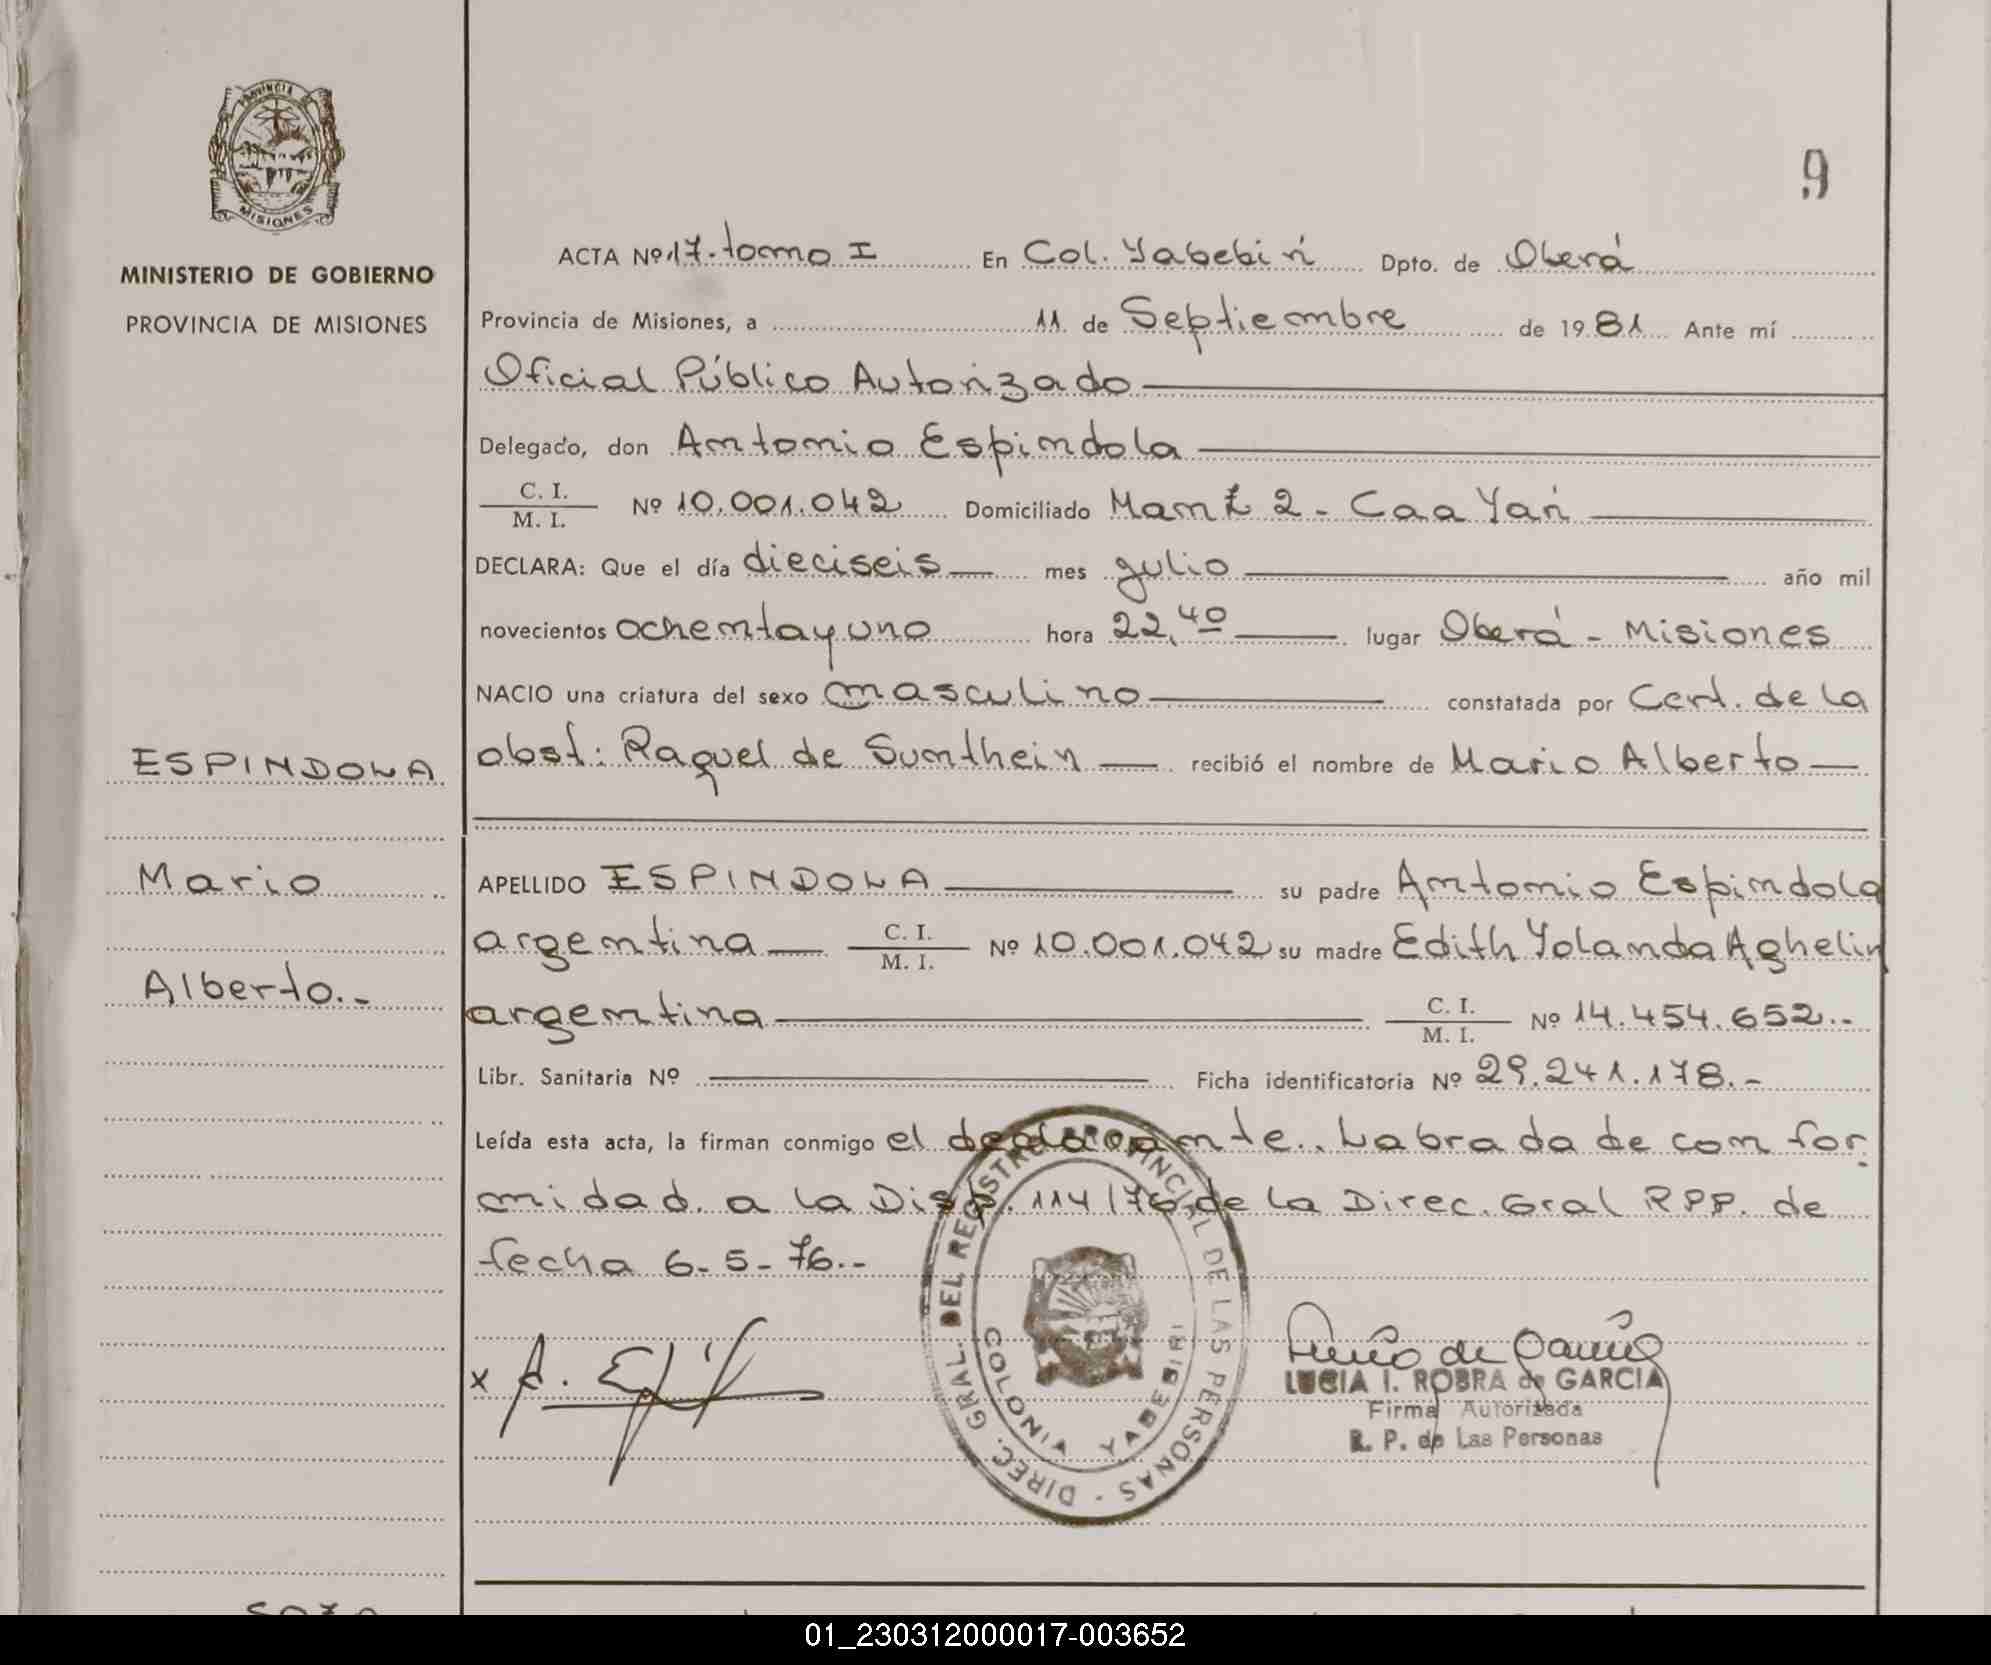 PROVINCIA DE
MISIONES
MINISTERIO DE GOBIERNO
PROVINCIA DE MISIONES
9
ACTA Nº 17. tomo I En Col. Yabebirí Dpto. de Oberá
Provincia de Misiones, a 11 de Septiembre de 1981 Ante mí
Oficial Público Autorizado
Delegado, don Antonio Espindola
C. I.
M. I. Nº 10.001.042 Domiciliado Manz 2 - Caa Yarí
DECLARA: Que el día dieciseis mes julio año mil
novecientos ochenta y uno hora 22,40 lugar Oberá - Misiones
NACIO una criatura del sexo masculino constatada por Cert. de la
obst: Raquel de Sunthein recibió el nombre de Mario Alberto
ESPINDOLA
Mario
Alberto.-
APELLIDO ESPINDOLA su padre Antonio Espindola
argentina C. I.
M. I. Nº 10.001.042 su madre Edith Yolanda Aghelin
argentina C. I.
M. I. Nº 14.454.652.-
Libr. Sanitaria Nº Ficha identificatoria Nº 29.241.178.-
Leída esta acta, la firman conmigo el declarante.. Labrada de confor
midad a la Disp. 114/76 de la Direc. Gral RPP. de
fecha 6-5-76.-
DIREC. GRAL. DEL REGISTRO PROVINCIAL DE LAS PERSONAS -
COLONIA YABEBIRI
x A.
LUCIA I. ROBRA de GARCIA
Firma Autorizada
R. P. de Las Personas
01_230312000017-003652